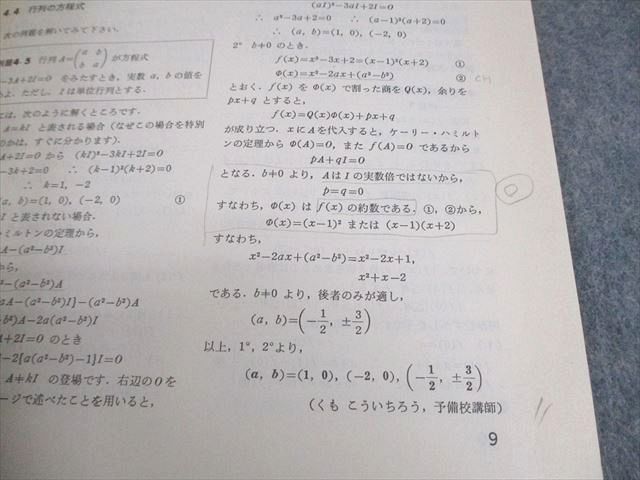 4.4 行列の方程式
次の例題を解いてみて下さい.
例題4.5 行列 A=(a b
b a) が方程式
-3A+2I=0 をみたすとき, 実数 a, b の値を
よ. ただし, I は単位行列とする.
には, 次のように解くところです.
A=kI と表される場合 (なぜこの場合を特別
のかは, すぐに分かります).
A+2I=O から (kI)³-3kI+2I=O
-3k+2=0 ∴ (k-1)²(k+2)=0
∴ k=1, -2
b)=(1, 0), (-2, 0) ①
I と表されない場合.
ミルトンの定理から,
A-(a²-b²)I
から,
²-(a²-b²)A
aA-(a²-b²)I]-(a²-b²)A
b²)A-2a(a²-b²)I
A+2I=O のとき
-2[a(a²-b²)-1]I=O
A≠kI の登場です. 右辺の O を
ージで述べたことを用いると,
(aI)³-3aI+2I=O
∴ a³-3a+2=0 ∴ (a-1)²(a+2)=0
∴ (a, b)=(1, 0), (-2, 0)
2° b≠0 のとき.
f(x)=x³-3x+2=(x-1)²(x+2) ①
Φ(x)=x²-2ax+(a²-b²) ②
とおく. f(x) を Φ(x) で割った商を Q(x), 余りを
px+q とすると,
f(x)=Q(x)Φ(x)+px+q
が成り立つ. x に A を代入すると, ケーリー・ハミルト
ンの定理から Φ(A)=O, また f(A)=O であるから
pA+qI=O
となる. b≠0 より, A は I の実数倍ではないから,
p=q=0
すなわち, Φ(x) は f(x) の約数である. ①, ②から,
Φ(x)=(x-1)² または (x-1)(x+2)
すなわち,
x²-2ax+(a²-b²)=x²-2x+1,
x²+x-2
である. b≠0 より, 後者のみが適し,
(a, b)=(-1/2, ±3/2)
以上, 1°, 2°より,
(a, b)=(1, 0), (-2, 0), (-1/2, ±3/2)
(くも こういちろう, 予備校講師)
9